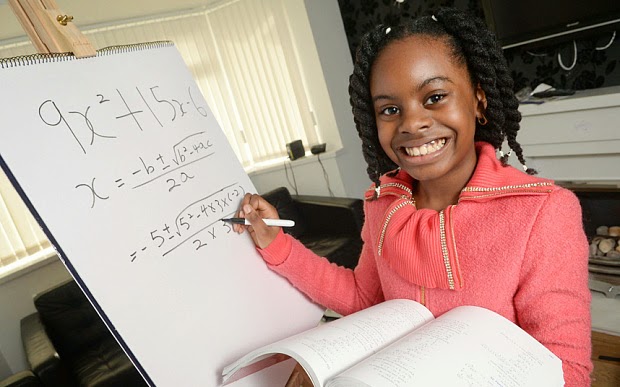 9x² + 15x - 6
x = -b ± √b² - 4ac / 2a
= -5 ± √(5² - 4x3x(-2) / 2 x 3